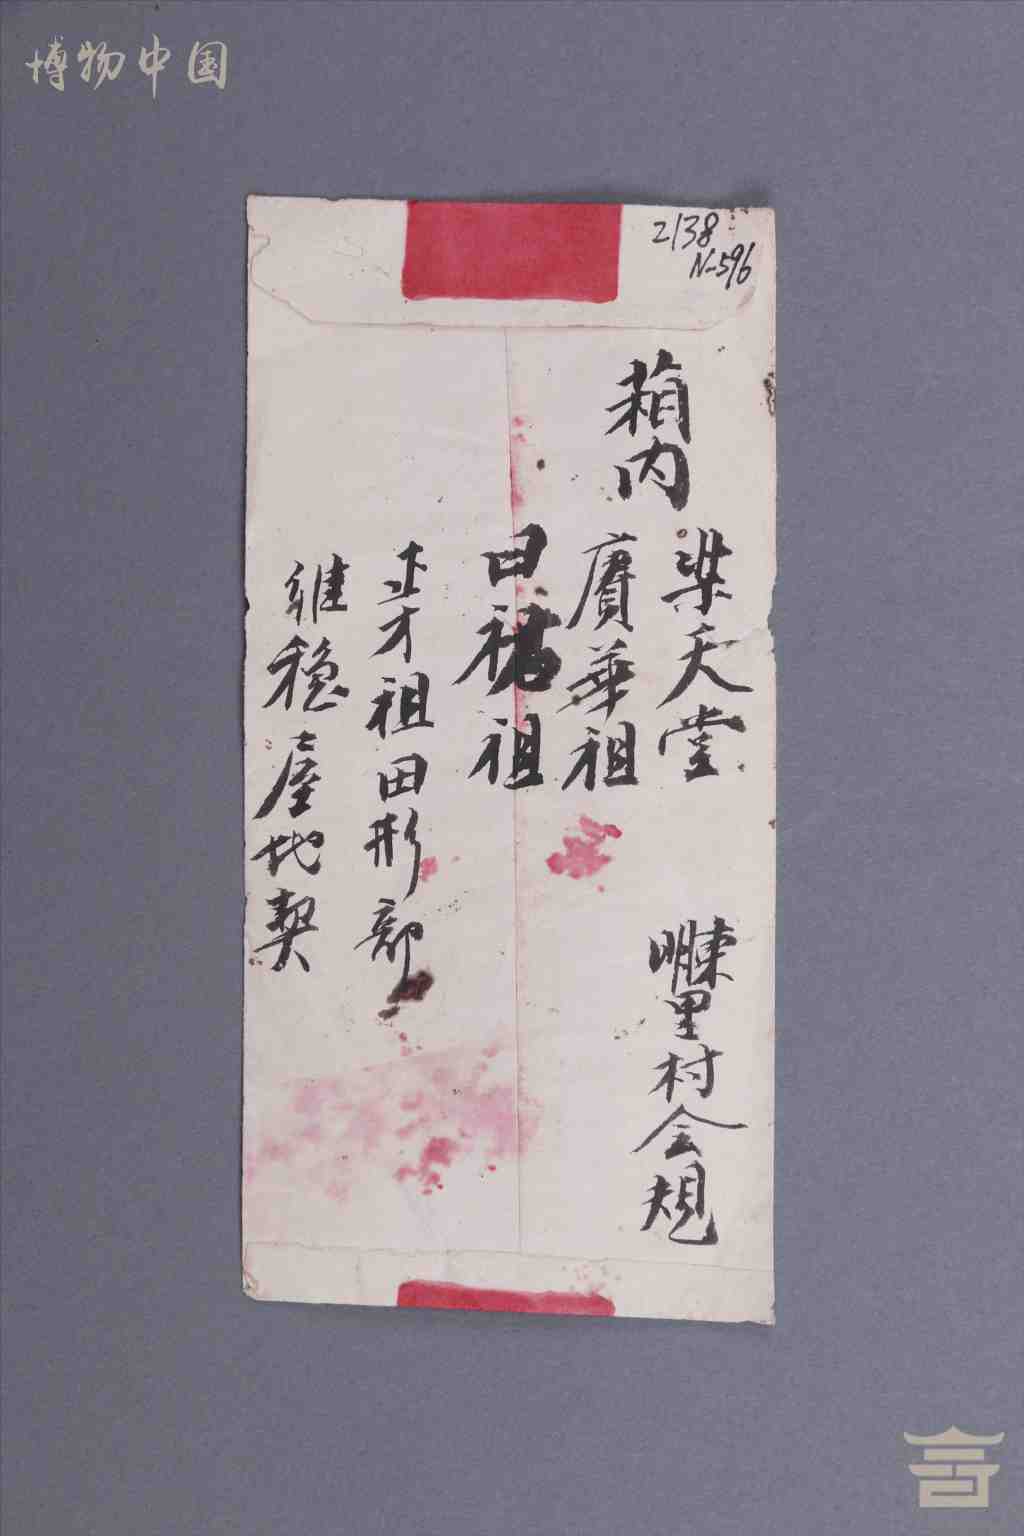 博物中国
2138
N-596
箱内
梁天堂
賡華祖
日裙祖
圭才祖田形部
維穩屋地契
東明里村会規